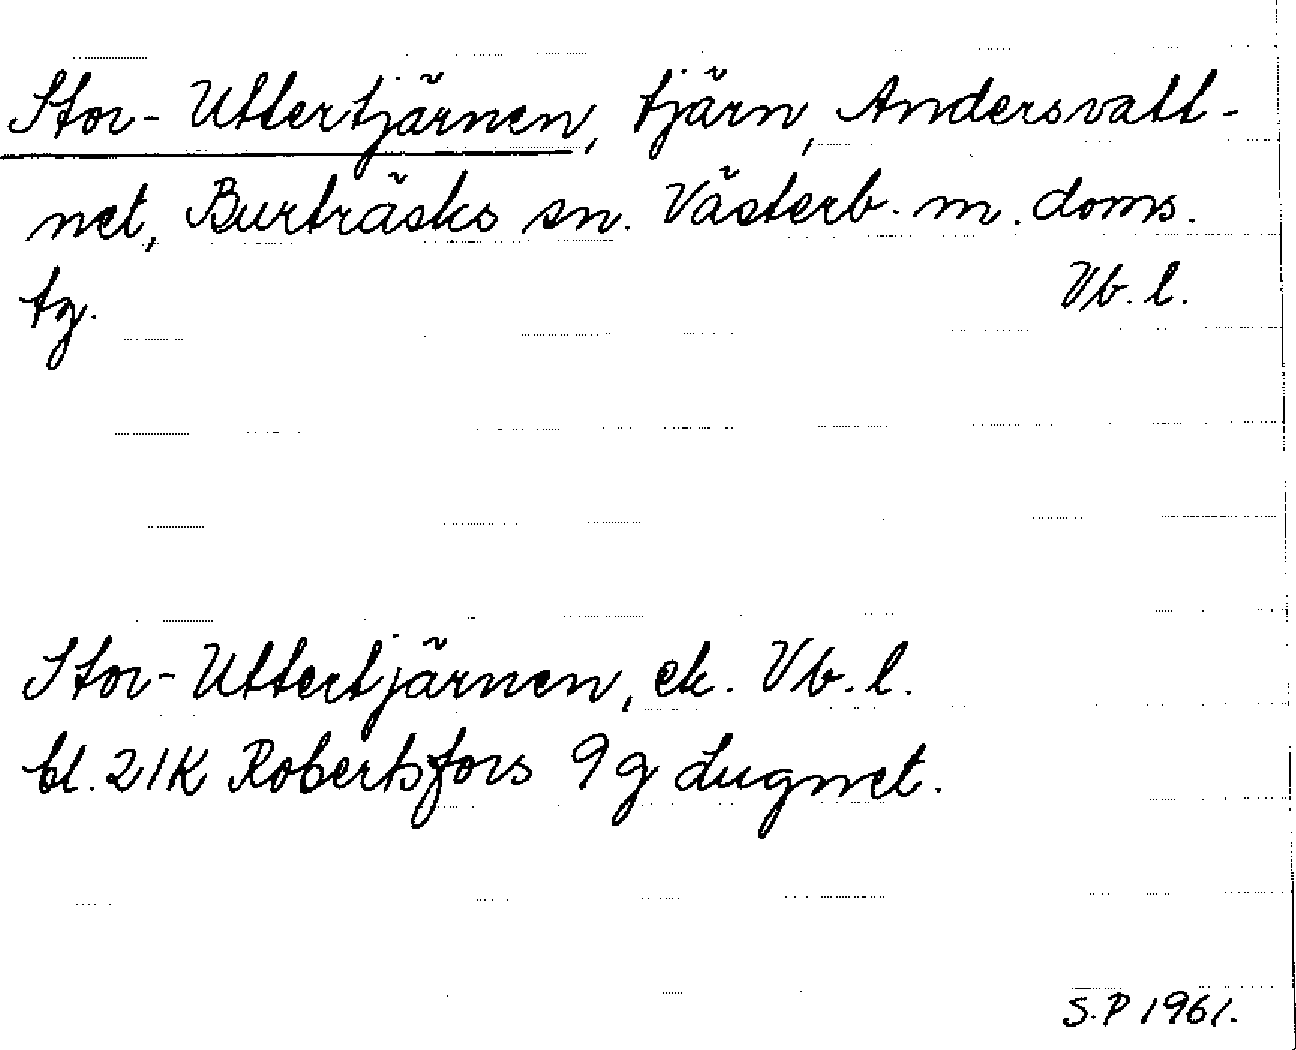 Stor-Uttertjärnen, tjärn, Andersvatt-
net, Burträsks sn. Västerb. m. doms.
tg.
Vb. l.
Stor-Uttertjärnen, ek. Vb. l.
bl. 21K Robertsfors 9 g Lugnet.
S.P 1961.